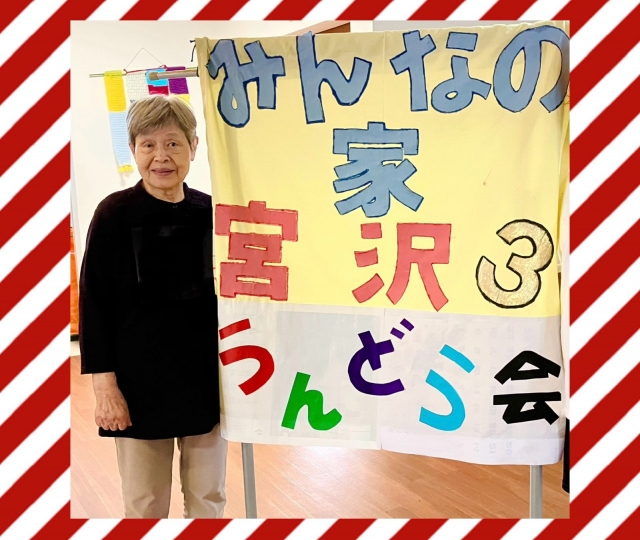 みんなの
家
宮沢3
うんどう会